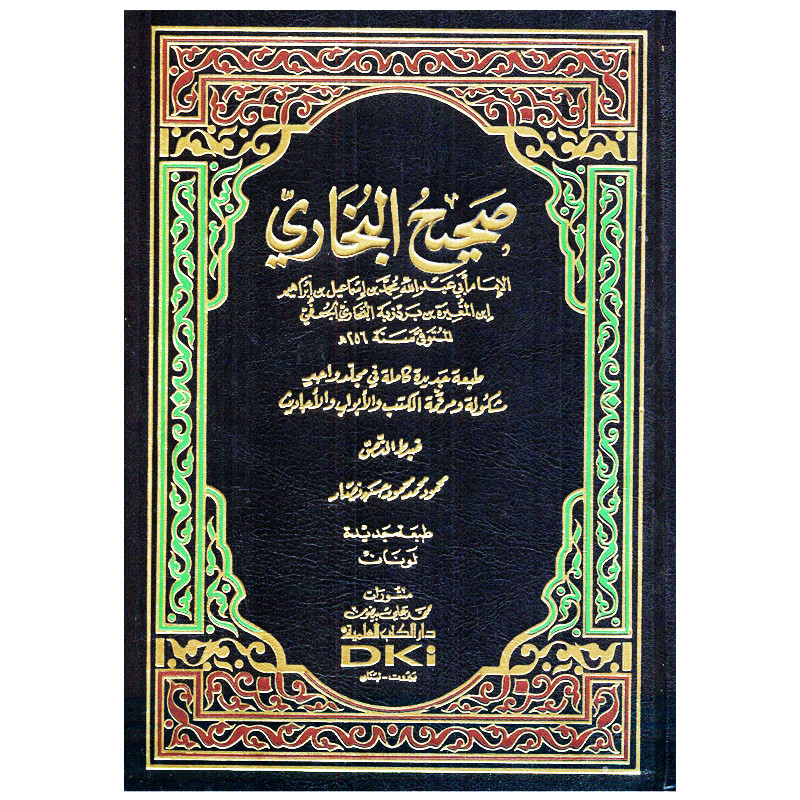 صَحِيحُ البُخَارِيّ
الإمام أبي عبد الله محمد بن إسماعيل بن إبراهيم
ابن المغيرة بن بردزبة البخاري الجعفي
المتوفى سنة ٢٥٦هـ
طبعة جديدة كاملة في مجلد واحد
مشكولة ومرقمة الكتب والأبواب والأحاديث
ضبط النص
محمود محمد محمود حسن نصار
طبعة جديدة
لونان
منشورات
محمد علي بيضون
دار الكتب العلمية
DKi
بيروت - لبنان